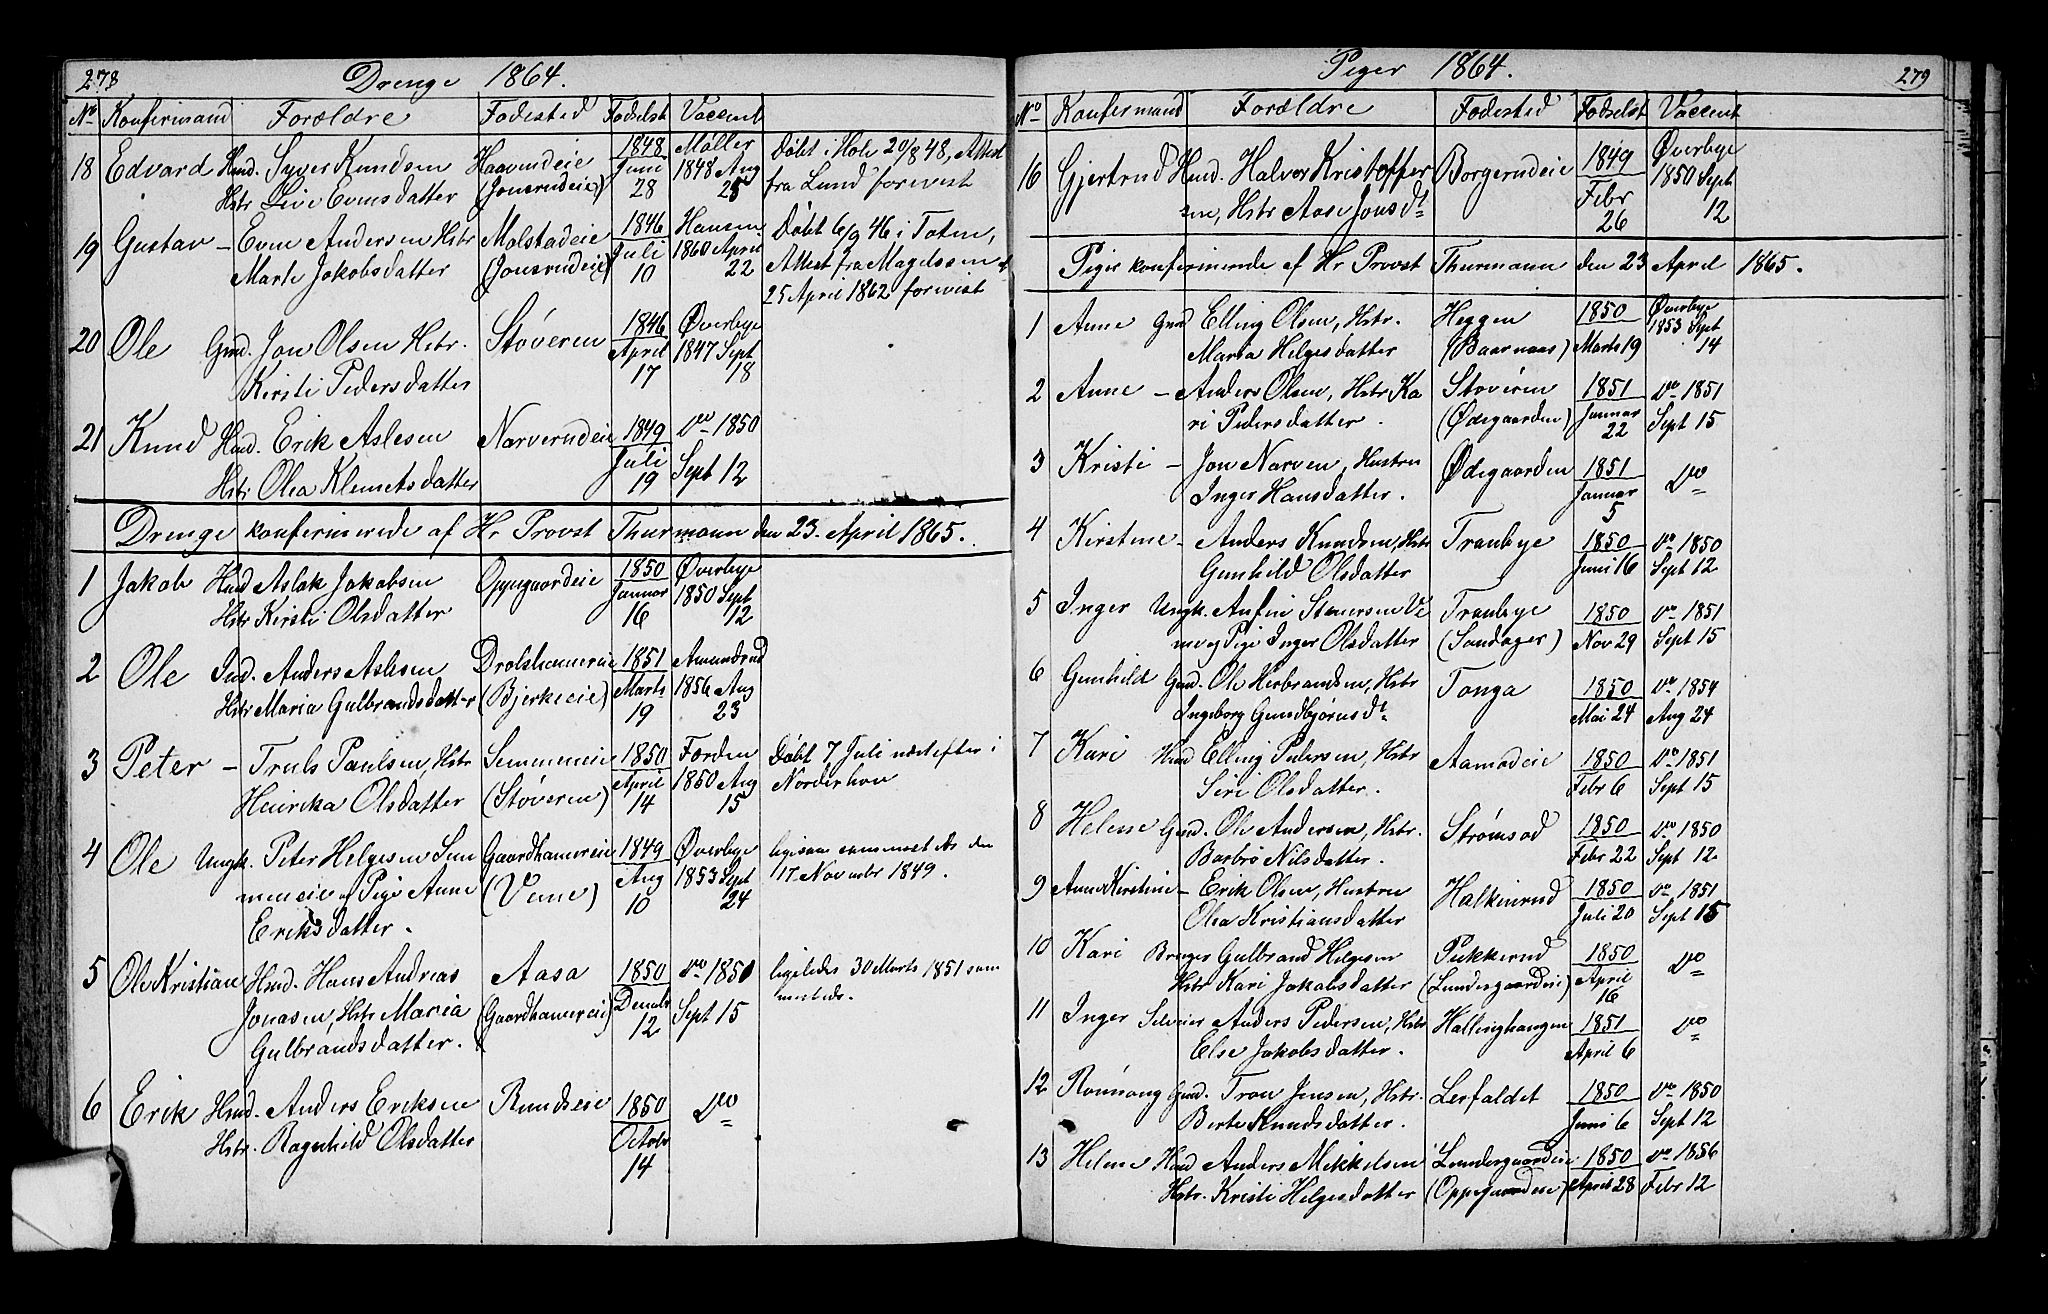 278 Drenge 1864.
No Konfirmand Forældre Fødested Fødselst Vaccent
18 Edvard Hmd. Syver Knudsen Haavrudeie 1848 Møller Døbt i Hole 20/8 48, Attest
Hstr Live Evensdatter (Jonsrudeie) Juni 28 1848 Aug 25 fra Lund forevist
19 Gustav – Even Andersen Hstr Molstadeie 1846 Hansen Døbt 6/9 46 i Toten,
Marte Jakobsdatter (Jonsrudeie) Juli 10 1860 April 22 Attest fra Magelssen
25 April 1862 forevist
20 Ole Gmd. Jon Olsen Hstr. Støveren 1846 Øverbye
Kirsti Pedersdatter April 17 1847 Sept 18
21 Knud Hmd. Erik Aslesen Narverudeie 1849 do 1850
Hstr Olea Klemetsdatter Juli 19 Sept 12
Drenge konfirmerede af Hr Provst Thurmann den 23. April 1865.
1 Jakob Hmd Aslak Jakobsen Oppegaardeie 1850 Øverbye
Hstr Kirsti Olsdatter Januar 16 1850 Sept 12
2 Ole Ind. Anders Aslesen Drolshammereie 1851 Amundrud
Hstr Maria Gulbrandsdatter (Bjerkeeie) Marts 19 1856 Aug 23
3 Peter – Truls Paulsen, Hstr Semmeneie 1850 Forden Døbt 7 Juli næstefter i
Heinrika Olsdatter (Støveren) April 14 1850 Aug 15 Norderhov
4 Ole Ungk. Peter Helgesen Sem Gaardhamereie 1849 Øverbye ligesaa sammesteds den
meneie og Pige Anne (Veme) Aug 10 1853 Sept 24 17 Novembr 1849.
Eriksdatter.
5 Ole Kristian Hmd. Hans Andreas Aasa 1850 do 1851 ligeledes 30 Marts 1851 sam
Jonasen, Hstr Maria (Gaardhamereie) Decmbr 12 Sept 15 mesteds.
Gulbrandsdatter.
6 Erik Hmd. Anders Eriksen Rudseie 1850 do
Hstr. Ragnhild Olsdatter Octobr 14
Piger 1864. 279
No Konfermand Forældre Fødested Fødselst Vaccent
16 Gjertrud Hmd. Halvor Kristoffer Borgerudeie 1849 Øverbye
sen, Hstr Aase Jonsdt Febr 26 1850 Sept 12
Piger konfirmerede af Hr Provst Thurmann den 23 April 1865.
1 Anne Gmd Elling Olsen, Hstr. Heggen 1850 Øverbye
Maria Helgesdatter (Baarnaas) Marts 19 1853 Sept 14
2 Anne – Anders Olsen, Hstr Ka Støveren 1851 do 1851
ri Pedersdatter. (Ødegaarden) Januar 22 Sept 15
3 Kristi – Jon Narven, Hustru Ødegaarden 1851 do
Inger Hansdatter. Januar 5
4 Kirstine – Anders Knudsen, Hstr Tranbye 1850 do 1850
Gunhild Olsdatter Juni 16 Sept 12
5 Inger Ungk. Anfin Stenersen Ve Tranbye 1850 do 1851
me og Pige Inger Olsdatter (Sandager) Nov 29 Sept 15
6 Gunhild Gmd. Ole Herbrandsen, Hstr Tonga 1850 do 1854
Ingeborg Gundbjørnsdt Mai 24 Aug 24
7 Kari Hmd Elling Pedersen, Hstr Aamodeie 1850 do 1851
Siri Olsdatter. Febr 6 Sept 15
8 Helene Gmd. Ole Andersen, Hstr. Strømsod 1850 do 1850
Barbrø Nilsdatter. Febr 22 Sept 12
9 Anne Kirstine – Erik Olsen, Hustru Halkinrud 1850 do 1851
Olea Kristiansdatter Juli 20 Sept 15
10 Kari Bruger Gulbrand Helgesen Pukkerud 1850 do
Hstr Kari Jakobsdatter (Lundesgaardeie) April 16
11 Inger Selveier Anders Pedersen, Hstr Hallinghaugen 1851 do
Else Jakobsdatter. April 6
12 Rønnaug Gmd. Tron Jensen, Hstr. Lerfaldet 1850 do 1850
Berte Knudsdatter. Juni 6 Sept 12
13 Helene Hmd Anders Mikkelsen Lundesgaardeie 1850 do 1856
Hstr. Kristi Helgesdatter (Oppegaardeie) April 28 Febr 12